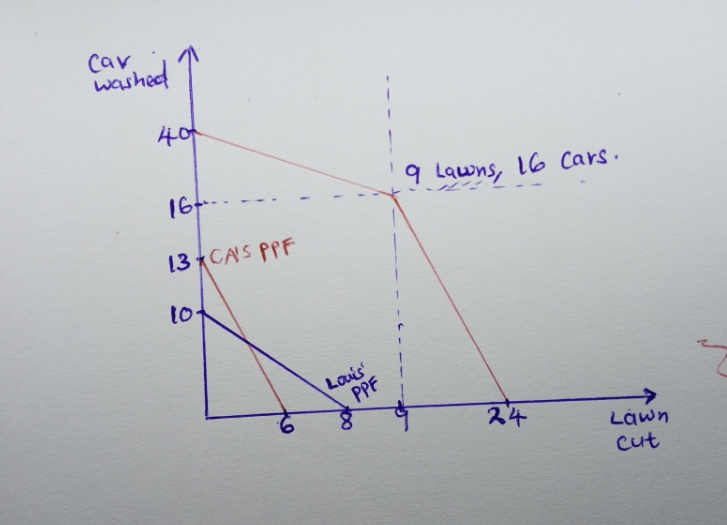 Car
washed
40
9 Lawns, 16 Cars.
16
13
CA'S PPF
10
Louis'
PPF
6
8
9
24
Lawn
cut